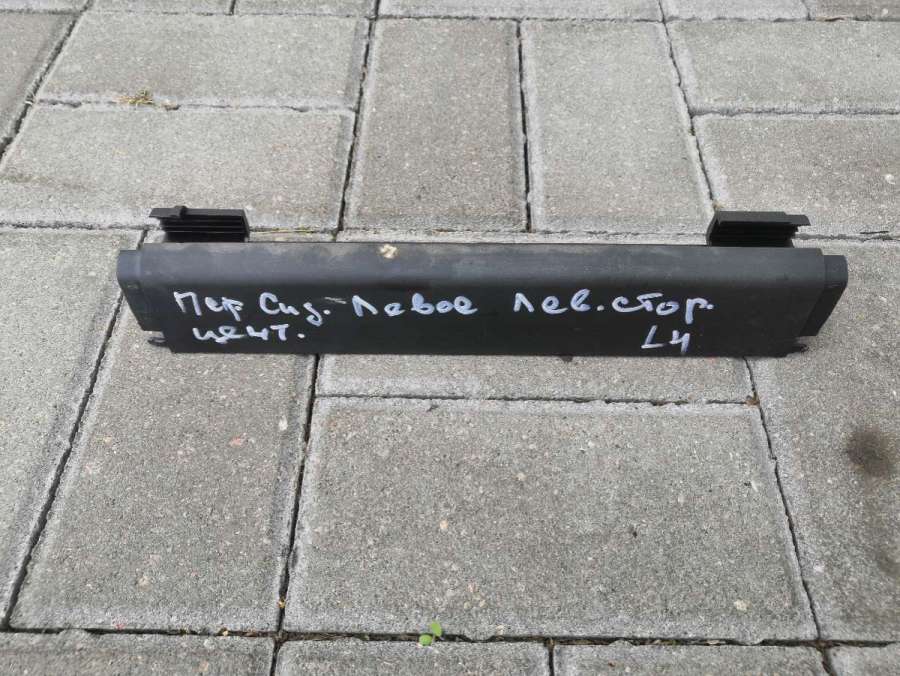 Пер Сид. Левое Лев. стор.
цент. L4